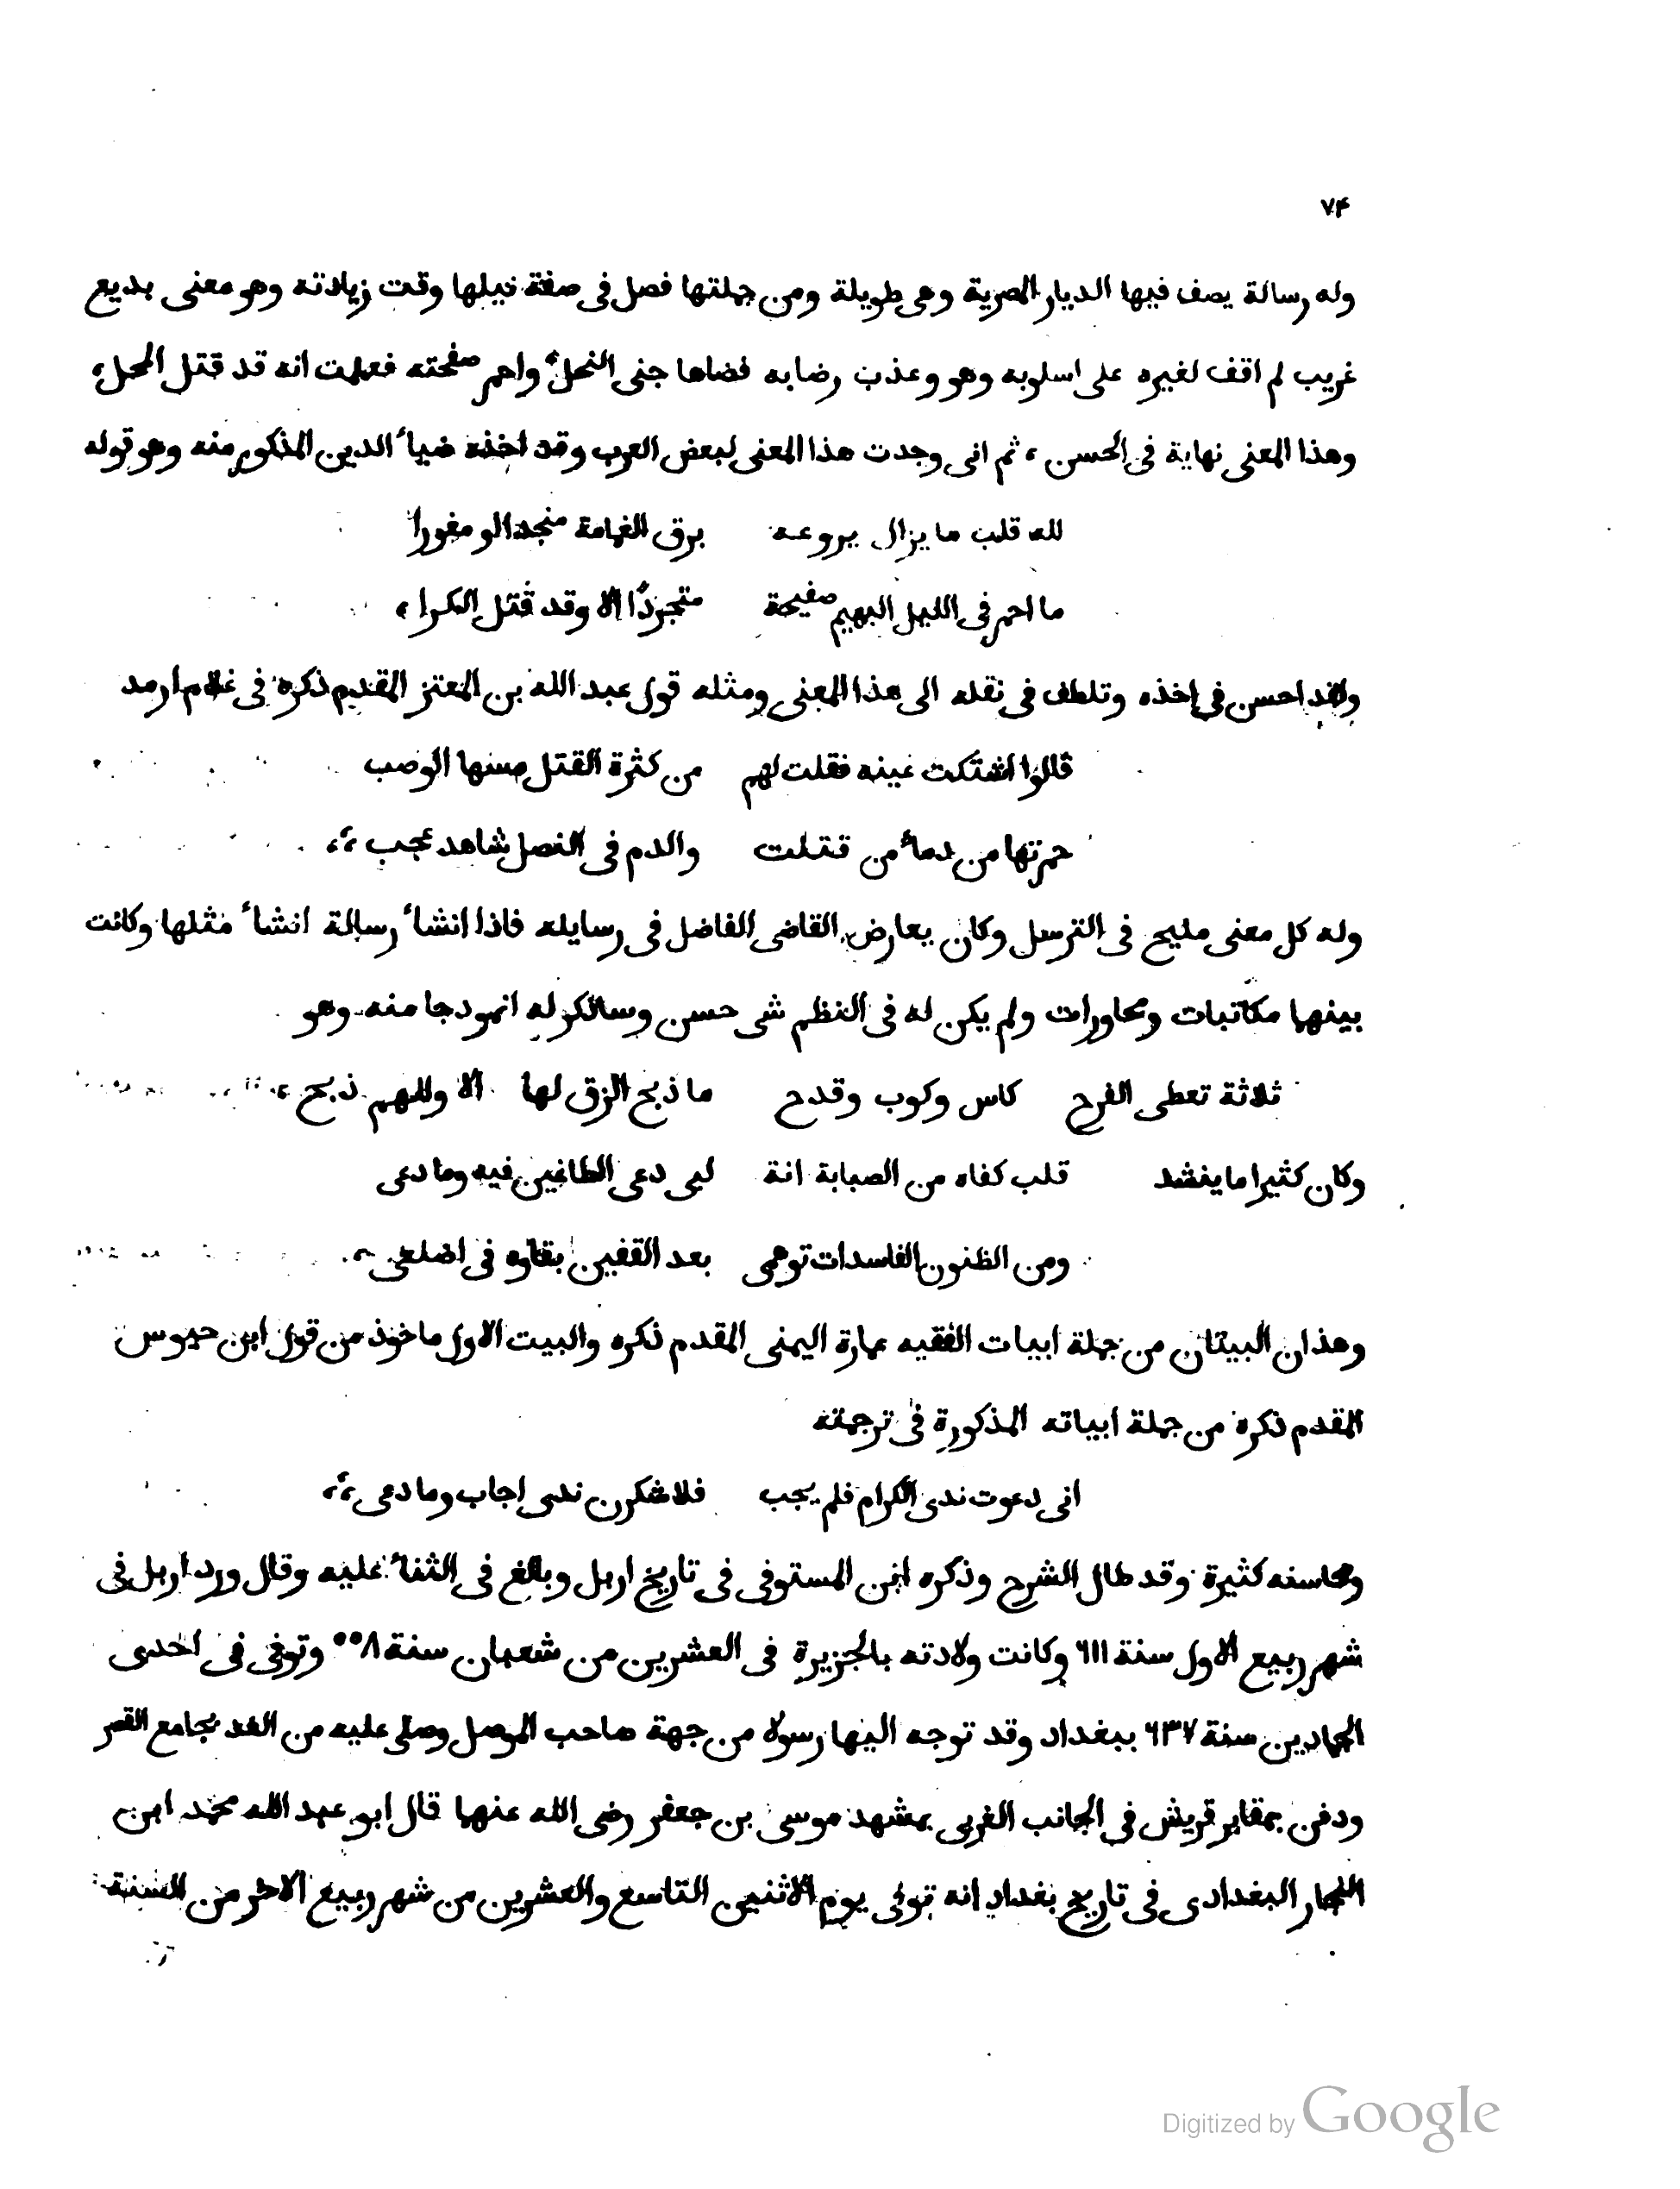 ٧۴
وله رسالة يصف فيها الديار المصرية وهى طويلة ومن جملتها فصل فى صفة نيلها وقت زيادته وهو معنى بديع
غريب لم اقف لغيره على اسلوبه وهو وعذب رضابه فضاها جنى النحل، واحمر صفحته فعلمت انه قد قتل المحل،
وهذا المعنى نهاية فى الحسن ، ثم انى وجدت هذا المعنى لبعض العرب وقد اخذه ضياء الدين المذكور منه وهو قوله
لله قلب ما يزال يروعه برق الغمامة منجدا لو مغورا
ما احمر فى الليل البهيم صفيحة متجردًا الا وقد قتل الكرا ،
ولقد احسن فى اخذه وتلطف فى نقله الى هذا المعنى ومثله قول عبد الله بن المعتز المقدم ذكره فى غلام ارمد
قالوا اشتكت عينه فقلت لهم من كثرة القتل مسها الوصب
حمرتها من دماء من قتلت والدم فى النصل شاهد عجب ،،
وله كل معنى مليح فى الترسل وكان يعارض القاضى الفاضل فى رسايله فاذا انشاء رسالة انشاء مثلها وكانت
بينهما مكاتبات ومحاورات ولم يكن له فى النظم شى حسن وساذكر له انمودجا منه وهو
ثلاثة تعطى الفرح كاس وكوب وقدح ما ذبح الزق لها الا وللهم ذبح ،
وكان كثيرا ما ينشد قلب كفاه من الصبابة انة لبى دعى الظاعنين فيه وما دعى
ومن الظنون الفاسدات توهمى بعد القفين بقاوه فى اضلعى ،
وهذان البيتان من جملة ابيات الفقيه عمارة اليمنى المقدم ذكره والبيت الاول ماخوذ من قول ابن حيوس
المقدم ذكره من جملة ابياته المذكورة فى ترجمته
انى دعوت ندى الكرام فلم يجب فلاشكرن ندى اجاب وما دعى ،،
ومحاسنه كثيرة وقد طال الشرح وذكره ابن المستوفى فى تاريخ اربل وبالغ فى الثناء عليه وقال ورد اربل فى
شهر ربيع الاول سنة ٦١١ وكانت ولادته بالجزيرة فى العشرين من شعبان سنة ٥٥٨ وتوفى فى احدى
الجمادين سنة ٦٣٧ ببغداد وقد توجه اليها رسولا من جهة صاحب الموصل وصلى عليه من الغد بجامع القصر
ودفن بمقابر قريش فى الجانب الغربى بمشهد موسى بن جعفر رضى الله عنهما قال ابو عبد الله محمد ابن
النجار البغدادى فى تاريخ بغداد انه توفى يوم الاثنين التاسع والعشرين من شهر ربيع الاخر من السنة
Digitized by Google